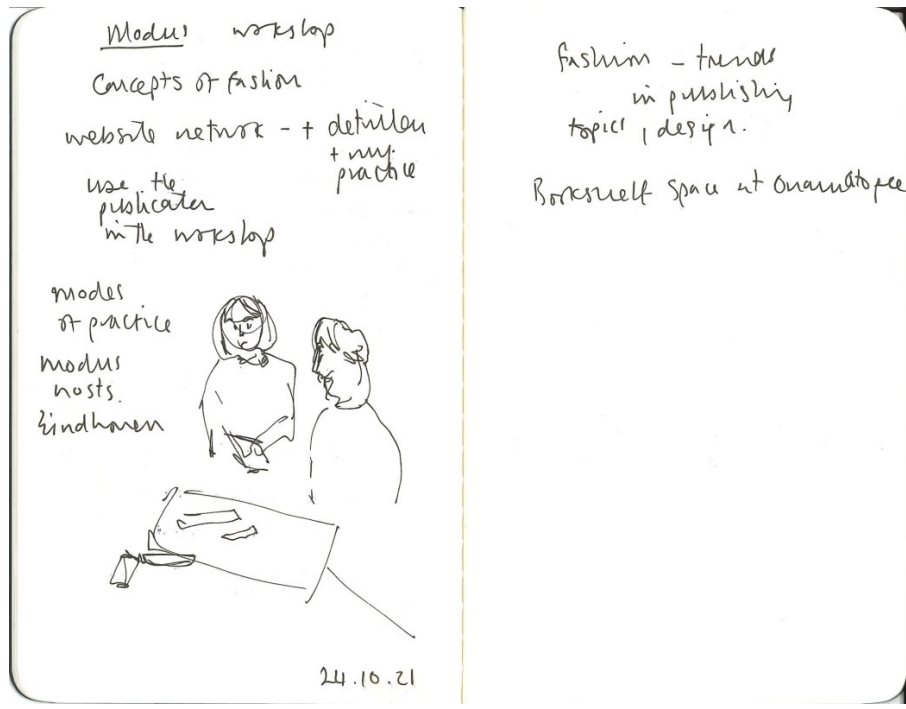 Modus workshop
Concepts of fashion
website network - + definition
+ my
practice
use the
publication
in the workshop
modes
of practice
modus
hosts.
Eindhoven
24.10.21
fashion - trends
in publishing
topics, design.
Bookshelf space at Onamatopee